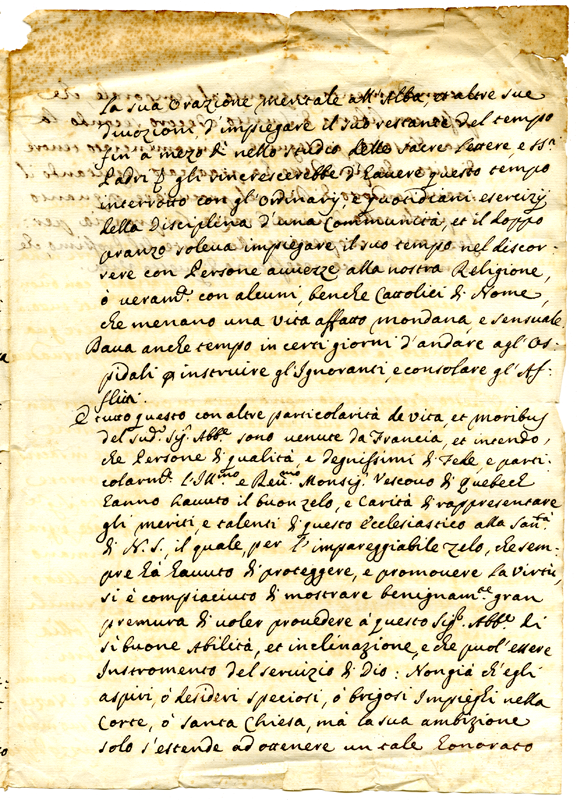 la sua Orazione mentale all'Alba, et altre sue
divozioni d'impiegare il suo restante del tempo
fin à mezo dì nello studio delle sacre lettere, e SS.i
Padri, gli rincrescerebbe d'havere questo tempo
interrotto con gl'Ordinarij, e quotidiani esercizij
della Disciplina d'una Communità, et il doppo
pranzo soleva impiegare il suo tempo nel discor-
rere con Persone avvezze alla nostra Religione,
ò veram.e con alcuni, benche Cattolici di Nome,
che menano una vita affatto mondana, e sensuale
Dava anche tempo in certi giorni d'andare agl'Os-
pidali p instruire gl'Ignoranti, e consolare gl'Af-
flitti.
E tutto questo con altre particolarità de vita, et moribus
del sud.o Sig.r Abb.e sono venute da Francia, et intendo,
che Persone di qualità e degnissimi di Fede, e parti-
colarm.e l'Ill.mo e Rev.mo Monsig. Vescovo di Quebeck
hanno havuto il buon zelo, e Carità di rappresentare
gli meriti, e talenti di questo Ecclesiastico alla San.tà
di N.S., il quale, per l'impareggiabile zelo, che sem-
pre hà havuto di proteggere, e promovere la Virtù,
si è compiaciuto di mostrare benignam.e gran
premura di voler provedere à questo Sig.r Abb.e di
sì buone Abilità, et inclinazione, e che puol'essere
Instromento del servizio di Dio: Non già ch'egli
aspiri, ò desideri speciosi, ò brigosi Impieghi nella
Corte, ò Santa Chiesa, mà la sua ambizione
solo s'estende ad ottenere un tale honorato